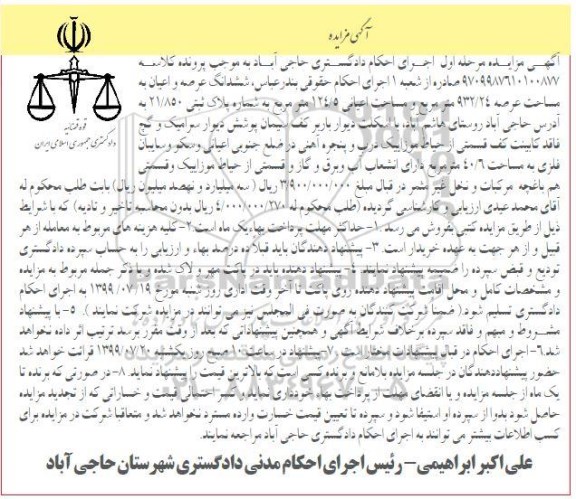 آگهی مزایده
آگهی مزایده مرحله اول اجرای احکام دادگستری حاجی آباد به موجب پرونده کلاسه
۹۷۰۹۹۸۷۶۱۰۱۰۰۸۷۷ صادره از شعبه ۱ اجرای احکام حقوقی بندرعباس، ششدانگ عرصه و اعیان به
مساحت عرصه ۹۳۲/۲۴ متر مربع و مساحت اعیانی ۱۲۴/۵ متر مربع به شماره پلاک ثبتی ۲۱/۸۵۰ به
آدرس حاجی آباد روستای با اسکلت دیوار باربر کف سیمان پوشش دیوار سرامیک و گچ
فاقد کابینت کف قسمتی از حیاط موزاییک درب و پنجره آهنی در ضلع جنوبی اعیانی و سکو سایبان
فلزی به مساحت ۴۰/۶ متر مربع دارای انشعاب آب وبرق و گاز و قسمتی از حیاط موزاییک وقسمتی
هم باغچه مرکبات و نخل غیر مثمر در قبال مبلغ ۳/۹۰۰/۰۰۰/۰۰۰ ریال (سه میلیارد و نهصد میلیون ریال) بابت طلب محکوم له
آقای محمد عبدی ارزیابی و کارشناسی گردیده (طلب محکوم له ۴/۰۰۰/۰۰۰/۲۷۰ ریال بدون محاسبه تاخیر و تادیه) که با شرایط
ذیل از طریق مزایده کتبی بفروش می رسد ۱- حداکثر مهلت پرداخت بها یک ماه است ۲- کلیه هزینه های مربوط به معامله از هر
قبیل و از هر جهت به عهده خریدار است. ۳- پیشنهاد دهندگان باید قبلا ده درصد بهاء و ارزیابی را به حساب سپرده دادگستری
تودیع و قبض سپرده را ضمیمه پیشنهاد نمایند. ۴- پیشنهاد دهنده باید در پاکت مهر و لاک شده با ذکر جمله مربوط به مزایده
و مشخصات کامل و محل اقامت پیشنهاد دهنده روی پاکت تا آخر وقت اداری روز شنبه مورخ ۱۳۹۹/۰۷/۱۹ به اجرای احکام
دادگستری تسلیم شود.( ضمنا شرکت کنندگان به صورت فی المجلس نیز می توانند در مزایده شرکت نمایند ). ۵- با پیشنهاد
مشروط و مبهم و فاقد سپرده برخلاف شرایط آگهی و همچنین پیشنهاداتی که بعد از وقت مقرر برسد ترتیب اثر داده نخواهد
شد.۶- اجرای احکام در قبال پیشنهادات مختار است. ۷- پیشنهاد در ساعت صبح روز یکشنبه ۱۳۹۹/۰۷/۲۰ قرائت خواهد شد
حضور پیشنهاددهندگان در جلسه مزایده بلامانع و برنده کسی است که بالاترین قیمت را پیشنهاد نماید. ۸- در صورتی که برنده تا
یک ماه از جلسه مزایده و با انقضای مهلت از پرداخت بها خودداری نماید کسر احتمالی قیمت و خساراتی که از تجدید مزایده
حاصل شود بدوا از سپرده او استیفا شود و سپرده تا تعیین قیمت خسارت وارده مسترد نخواهد شد و متعاقبا شرکت در مزایده برای
کسب اطلاعات بیشتر می توانند به اجرای احکام دادگستری حاجی آباد مراجعه نمایند.
علی اکبر ابراهیمی- رئیس اجرای احکام مدنی دادگستری شهرستان حاجی آباد
قوه قضائیه
دادگستری جمهوری اسلامی ایران
ParsNamadData
۰۲۱-۸۸۳۴۹۶۷۰-۵